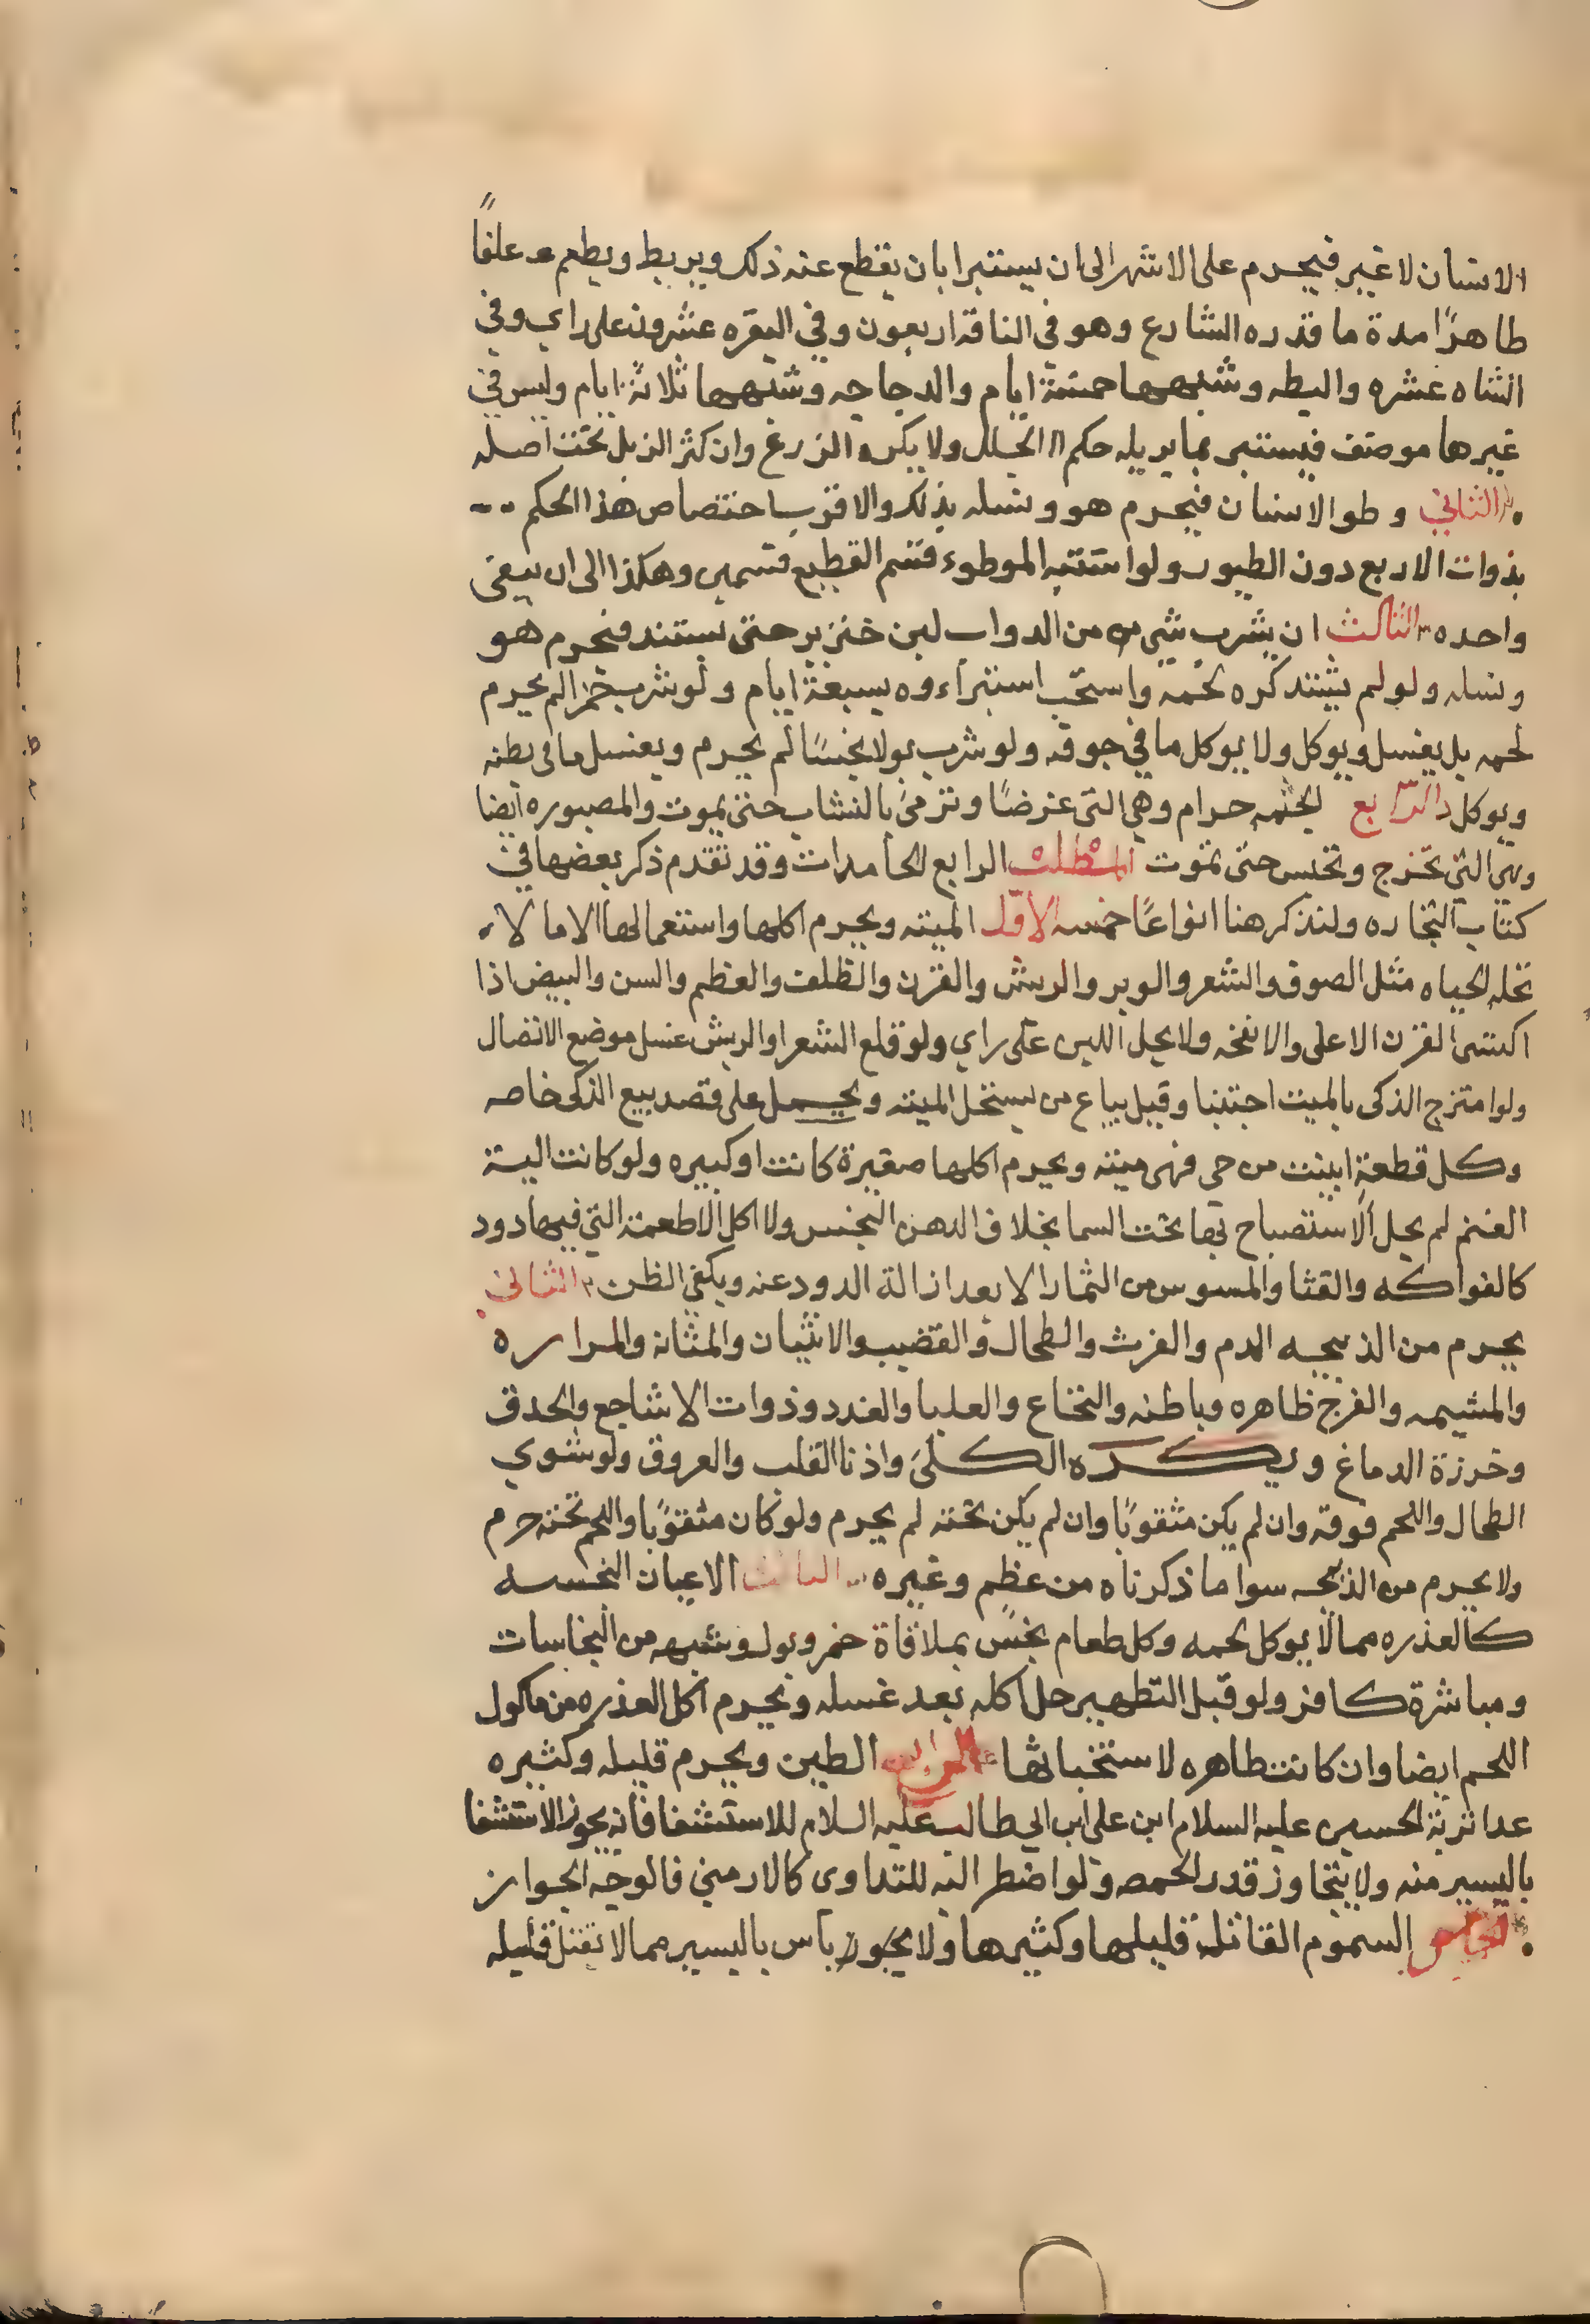 الانسان لا غير فيحرم على الاشهر الى ان يستبرا بان يقطع عنه ذلك ويربط ويطعم علفاً
طاهرًا مدة ما قدره الشارع وهو في الناقة اربعون وفي البقره عشرون على راي وفي
الشاه عشره والبطه وشبهها خمسة ايام والدجاجه وشبهها ثلاثة ايام وليس في
غيرها موصف فيستبرى بما يزيله حكم الجلل ولا يكره الزرع وان كثر الزبل تحت اصله
الثاني وطو الانسان فيحرم هو ونسله بذلك والاقرب اختصاص هذا الحكم
بذوات الاربع دون الطيور ولو اشتبه الموطوء قسم القطيع قسمين وهكذا الى ان يبقى
واحده الثالث ان يشرب شيء من الدواب لبن خنزير حتى يشتد فيحرم هو
ونسله ولو لم يشتد كره لحمه واستحب استبراءوه بسبعة ايام ولو شرب خمرا لم يحرم
لحمه بل يغسل ويوكل ولا يوكل ما في جوفه ولو شرب بولا نجسًا لم يحرم ويغسل ما في بطنه
ويوكل الرابع المجثمه حرام وهي التى غرضًا وترمى بالنشاب حتى يموت والمصبوره ايضا
وهي التي تخرج وتحبس حتى تموت المطلب الرابع الجامدات وقد تقدم ذكر بعضها في
كتاب التجاره ولنذكر هنا انواعًا خمسه الاول الميته ويحرم اكلها واستعمالها الا ما لا
تحله الحياه مثل الصوف والشعر والوبر والريش والقرن والظلف والعظم والسن والبيض اذا
اكتسى القرن الاعلى والانفخه ولا يحل اللبن على راي ولو قلع الشعر او الريش غسل موضع الاتصال
ولو امتزج الذكى بالميت اجتنبا وقيل يباع من يستحل الميته ويحمل على قصد بيع الذكى خاصه
وكل قطعة ابينت من حي فهى ميته ويحرم اكلها صغيرة كانت او كبيره ولو كانت الية
الغنم لم يحل الاستصباح بها تحت السما بخلاف الدهن النجس ولا اكل الاطعمة التي فيها دود
كالفواكه والقثا والمسوس من الثمار الا بعد ازالة الدود عنه ويكفي الظن الثاني
يحرم من الذبيحه الدم والفرث والطحال والقضيب والانثيان والمثانه والمراره
والمشيمه والفرج ظاهره وباطنه والنخاع والعلبا والغدد وذوات الاشاجع والحدق
وخرزة الدماغ ويكره الكلى واذنا القلب والعروق ولو شوي
الطحال واللحم فوقه وان لم يكن مثقوبًا وان لم يكن تحته لم يحرم ولو كان مثقوبًا واللحم تحته حرم
ولا يحرم من الذبيحه سوا ما ذكرناه من عظم وغيره الثالث الاعيان النجسه
كالعذره مما لا يوكل لحمه وكل طعام نجس بملاقاة خمر وبول وشبهه من النجاسات
ومباشرة كافر ولو قبل التطهير حل اكله بعد غسله ويحرم اكل العذره من ماكول
اللحم ايضا وان كانت طاهره لاستخباثها الرابع الطين ويحرم قليله وكثيره
عدا تربة الحسين عليه السلام ابن على ابن ابي طالب عليه السلام للاستشفا فانه يجوز الاستشفا
باليسير منه ولا يتجاوز قدر الحمصه ولو اضطر اليه للتداوى كالارمني فالوجه الجواز
الخامس السموم القاتله قليلها وكثيرها ولا يجوز باس باليسير مما لا تقتل قليله